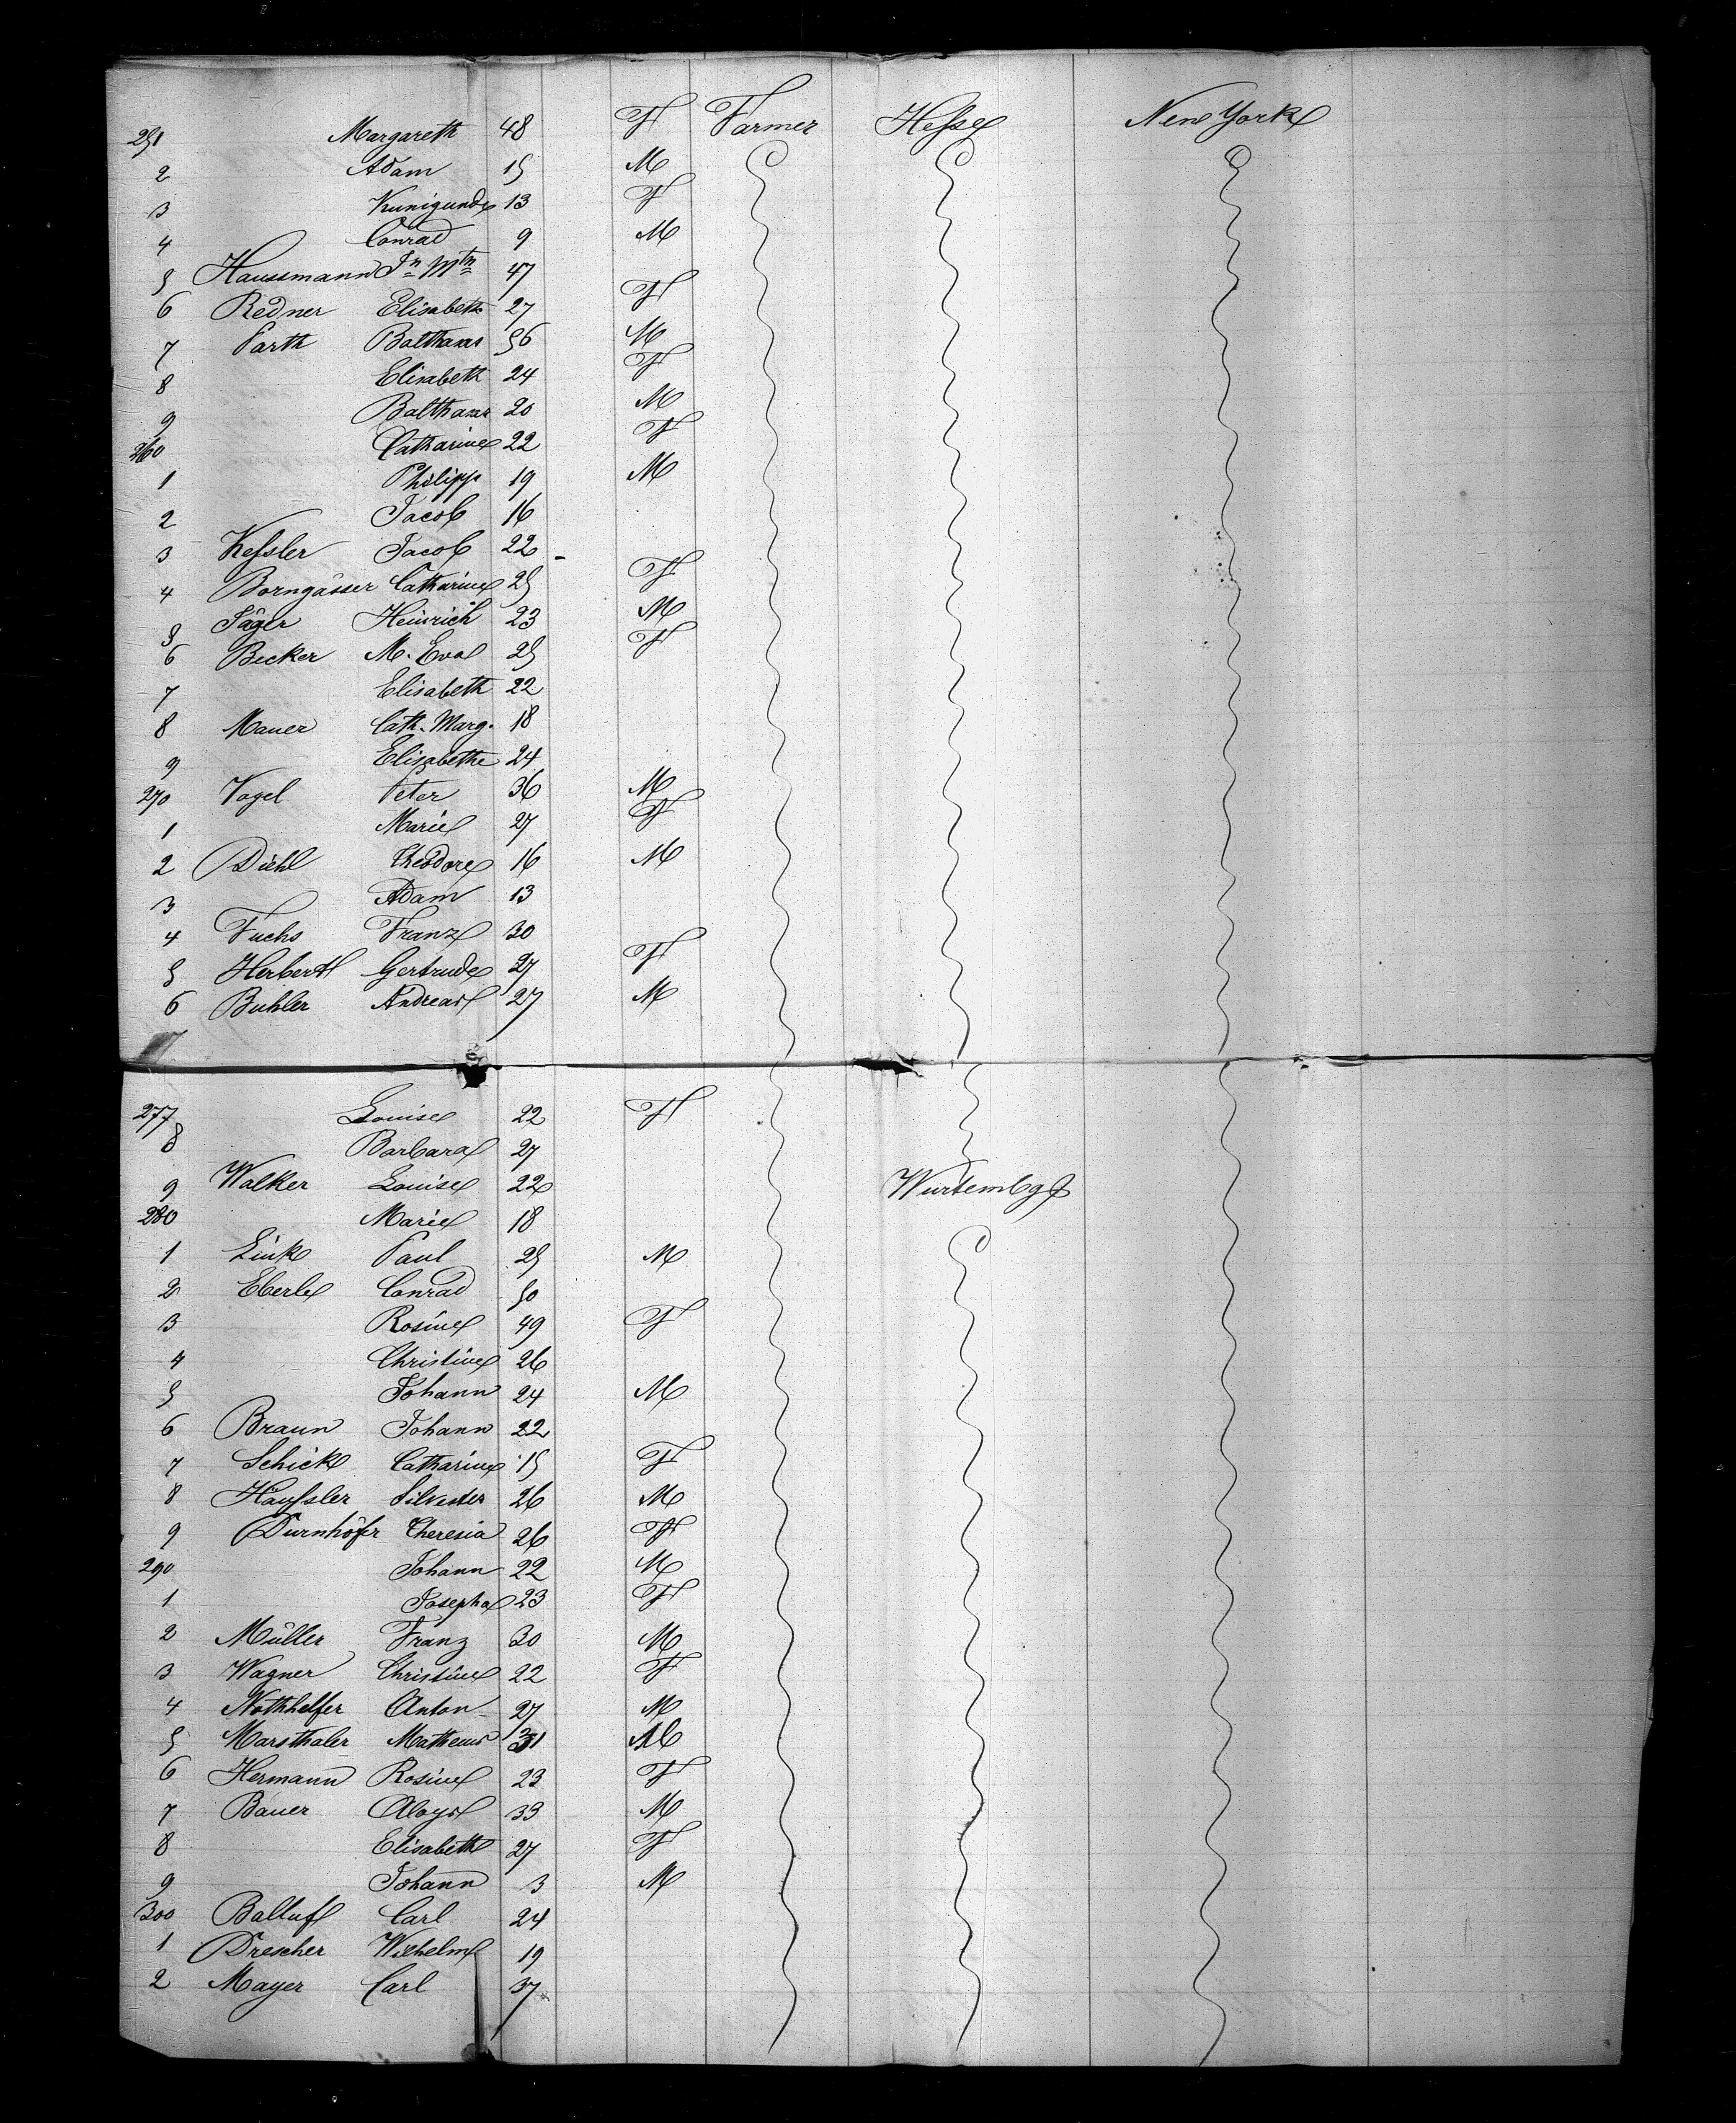 251 Margareth 48 F Farmer Hesse New York
2 Adam 15 M
3 Kunigunde 13 F
4 Conrad 9 M
5 Haussmann Jn Mtn 47
6 Redner Elisabeth 27 F
7 Parth Balthasar 56 M
8 Elisabeth 24 F
9 Balthasar 20 M
260 Catharine 22 F
1 Philipp 19 M
2 Jacob 16
3 Kessler Jacob 22
4 Borngässer Catharine 25 F
5 Jäger Heinrich 23 M
6 Becker M. Eva 25 F
7 Elisabeth 22
8 Mauer Cath. Marg. 18
9 Elisabethe 24
270 Vogel Peter 36 M
1 Marie 27 F
2 Diehl Theodore 16 M
3 Adam 13
4 Fuchs Franz 30
5 Herberth Gertrude 27 F
6 Buhler Andreas 27 M
277 Louise 22 F
8 Barbara 27
9 Walker Louise 22 Wurtembg
280 Marie 18
1 Link Paul 25 M
2 Eberle Conrad 50
3 Rosine 49 F
4 Christine 26
5 Johann 24 M
6 Braun Johann 22
7 Schick Catharine 15 F
8 Häussler Silvester 26 M
9 Durnhöfer Theresia 26 F
290 Johann 22 M
1 Josepha 23 F
2 Müller Franz 30 M
3 Wagner Christine 22 F
4 Nothhelfer Anton 27 M
5 Marsthaler Matheus 31 M
6 Hermann Rosine 23 F
7 Bauer Aloys 33 M
8 Elisabeth 27 F
9 Johann 3 M
300 Balluf Carl 24
1 Drescher Wilhelm 19
2 Mayer Carl 37